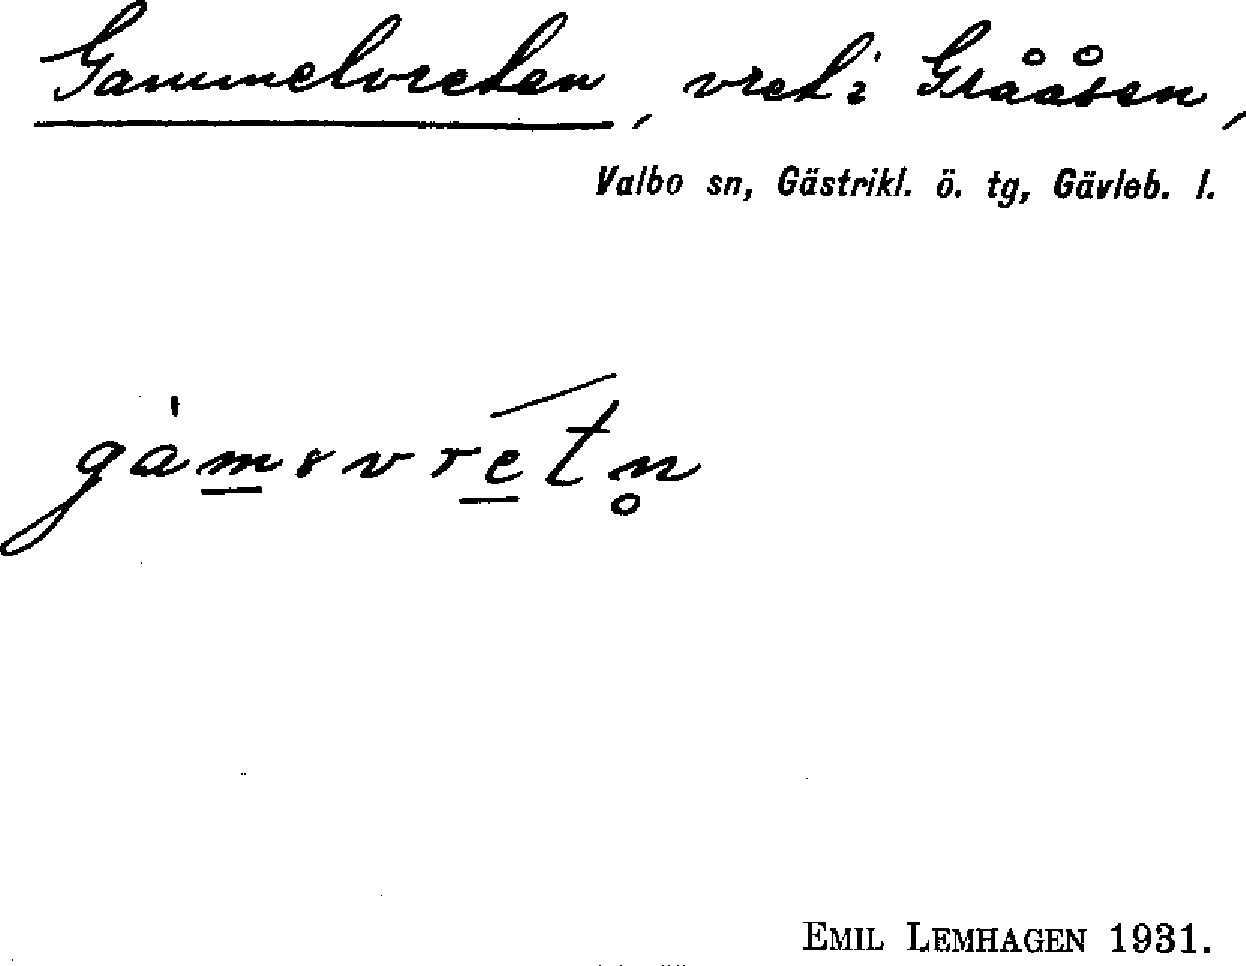 Gammelvreten, vret i Grååsen,
Valbo sn, Gästrikl. ö. tg, Gävleb. l.
EMIL LEMHAGEN 1931.